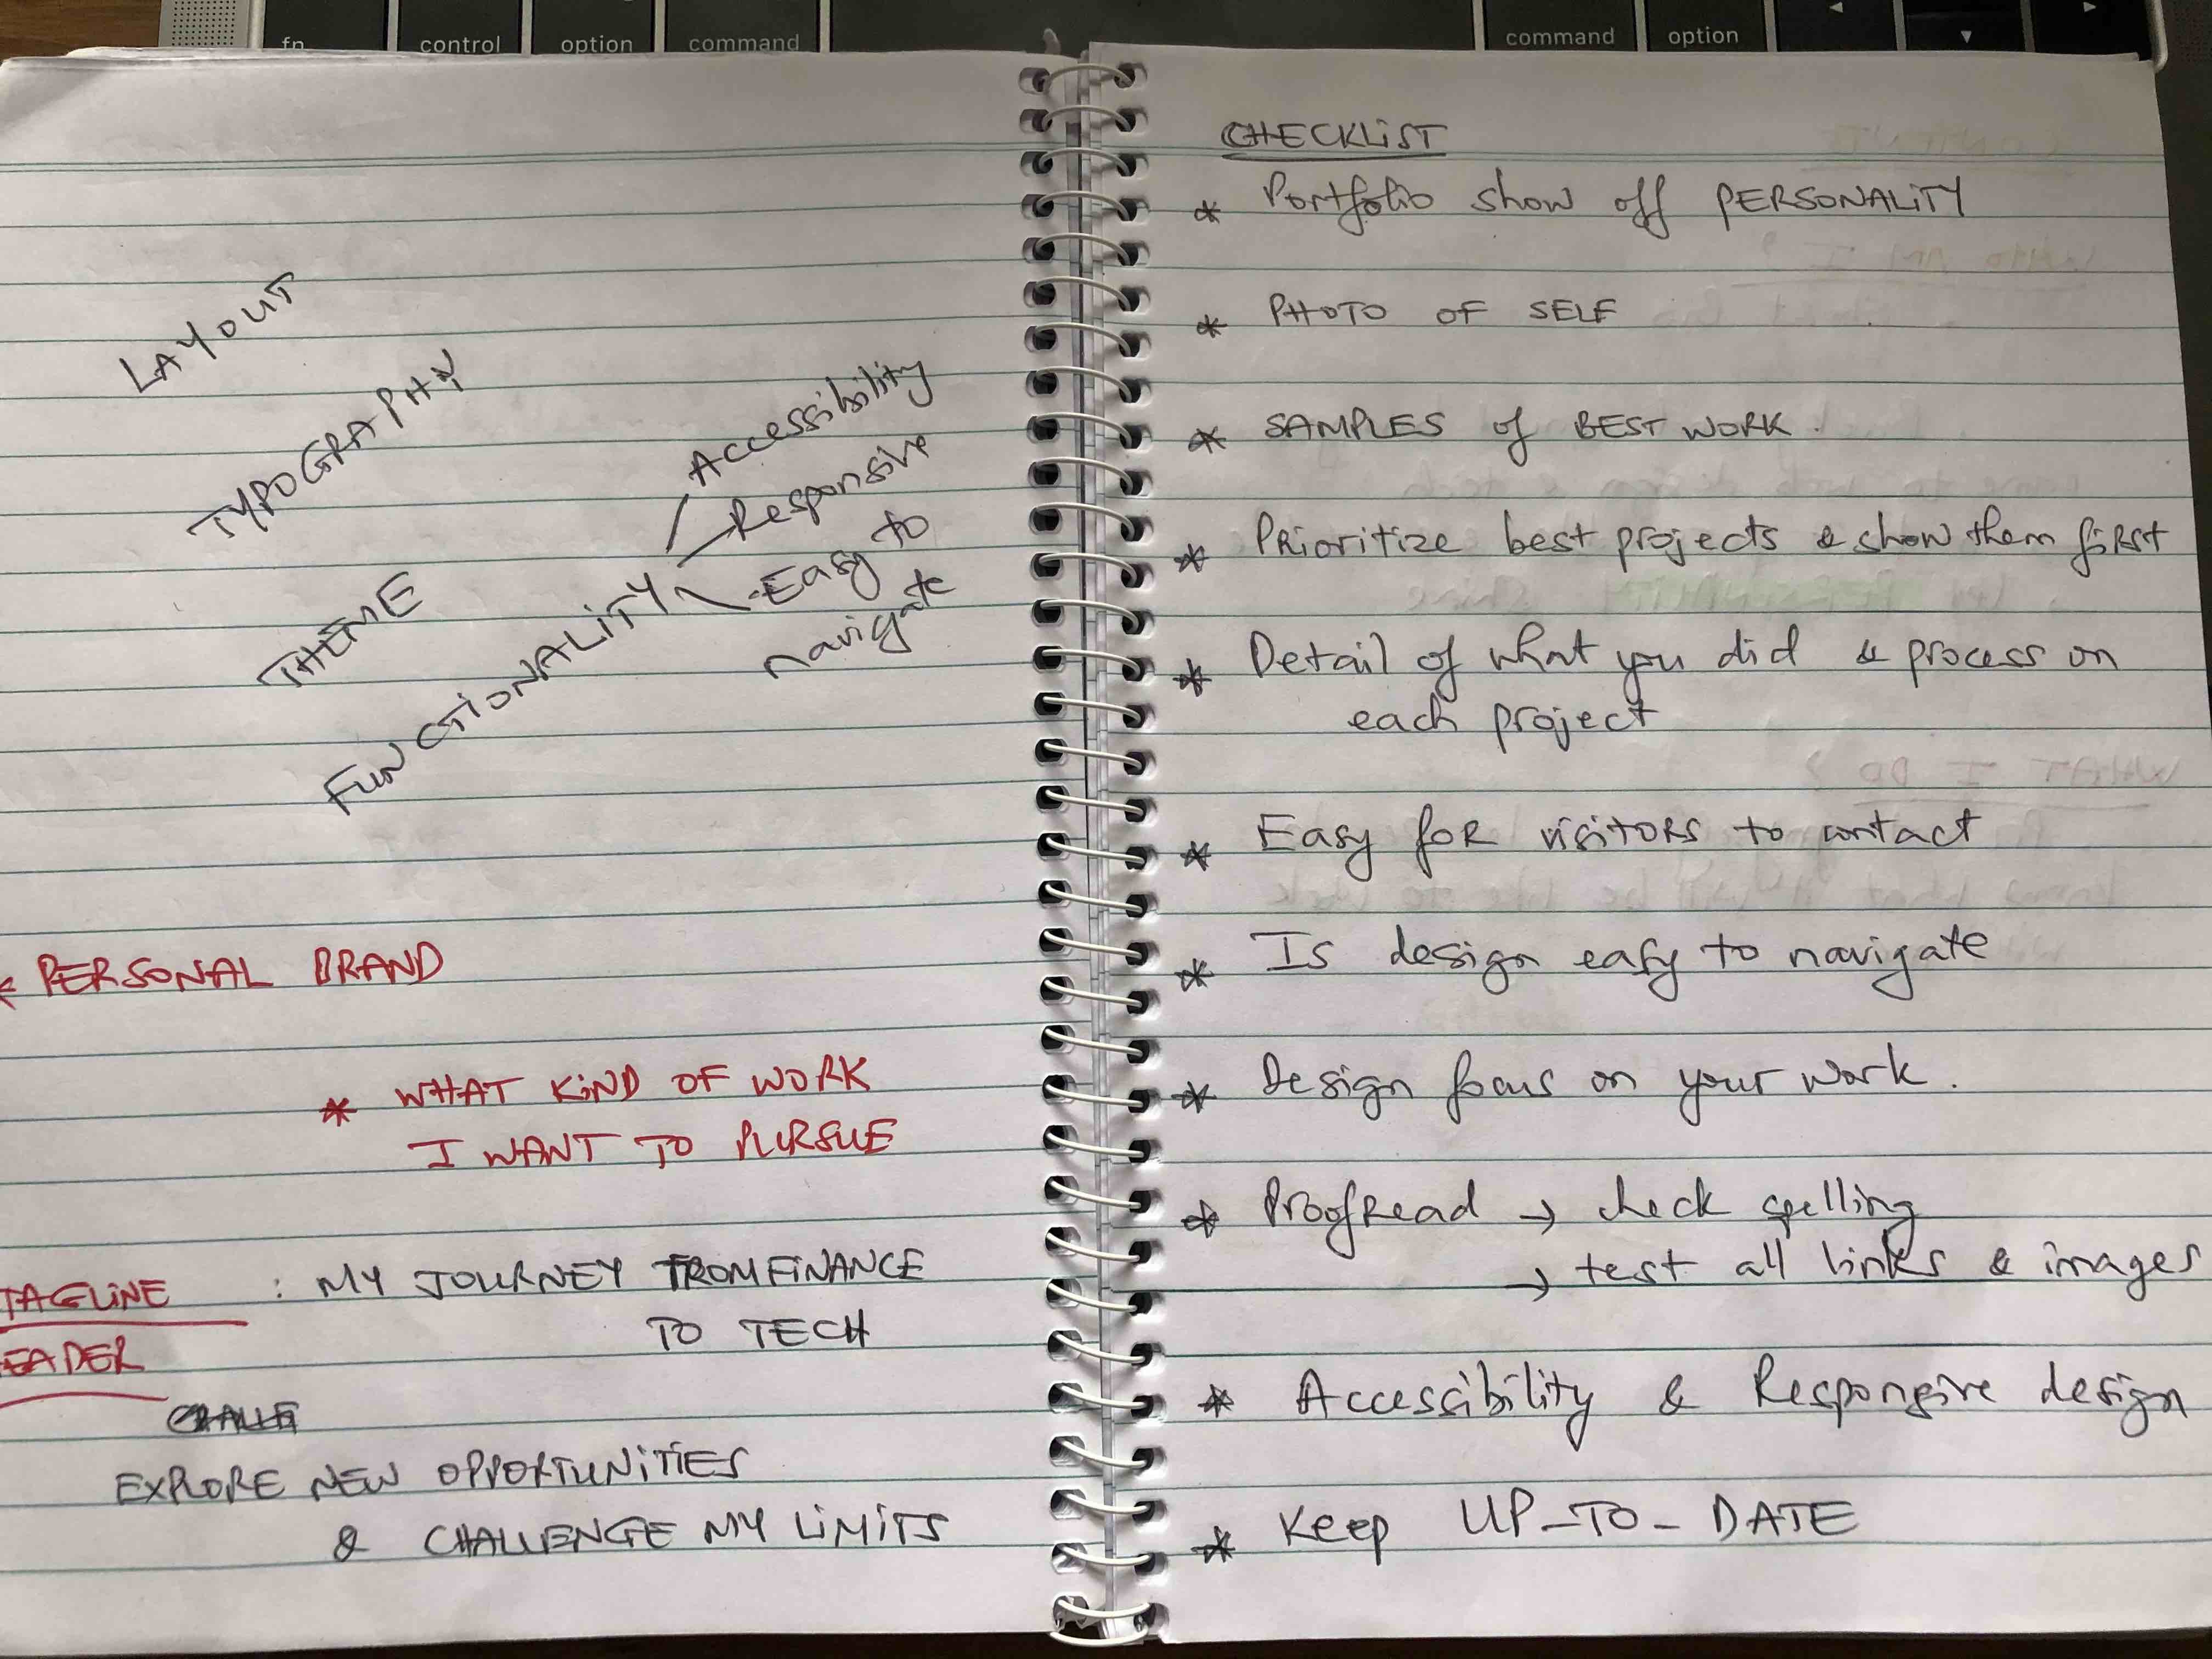 fn control option command command option
LAYOUT
TYPOGRAPHY
THEME
FUNCTIONALITY
Accessibility
Responsive
Easy to
navigate
* PERSONAL BRAND
* WHAT KIND OF WORK
I WANT TO PURSUE
TAGLINE : MY JOURNEY FROM FINANCE
TO TECH
EADER
EXPLORE NEW OPPORTUNITIES
& CHALLENGE MY LIMITS
CHECKLIST
* Portfolio show off PERSONALITY
* PHOTO OF SELF
* SAMPLES of BEST WORK.
* Prioritize best projects & show them first
* Detail of what you did & process on
each project
* Easy for visitors to contact
* Is design easy to navigate
* Design focus on your work.
* Proofread → check spelling
→ test all links & images
* Accessibility & Responsive design
* Keep UP-TO-DATE